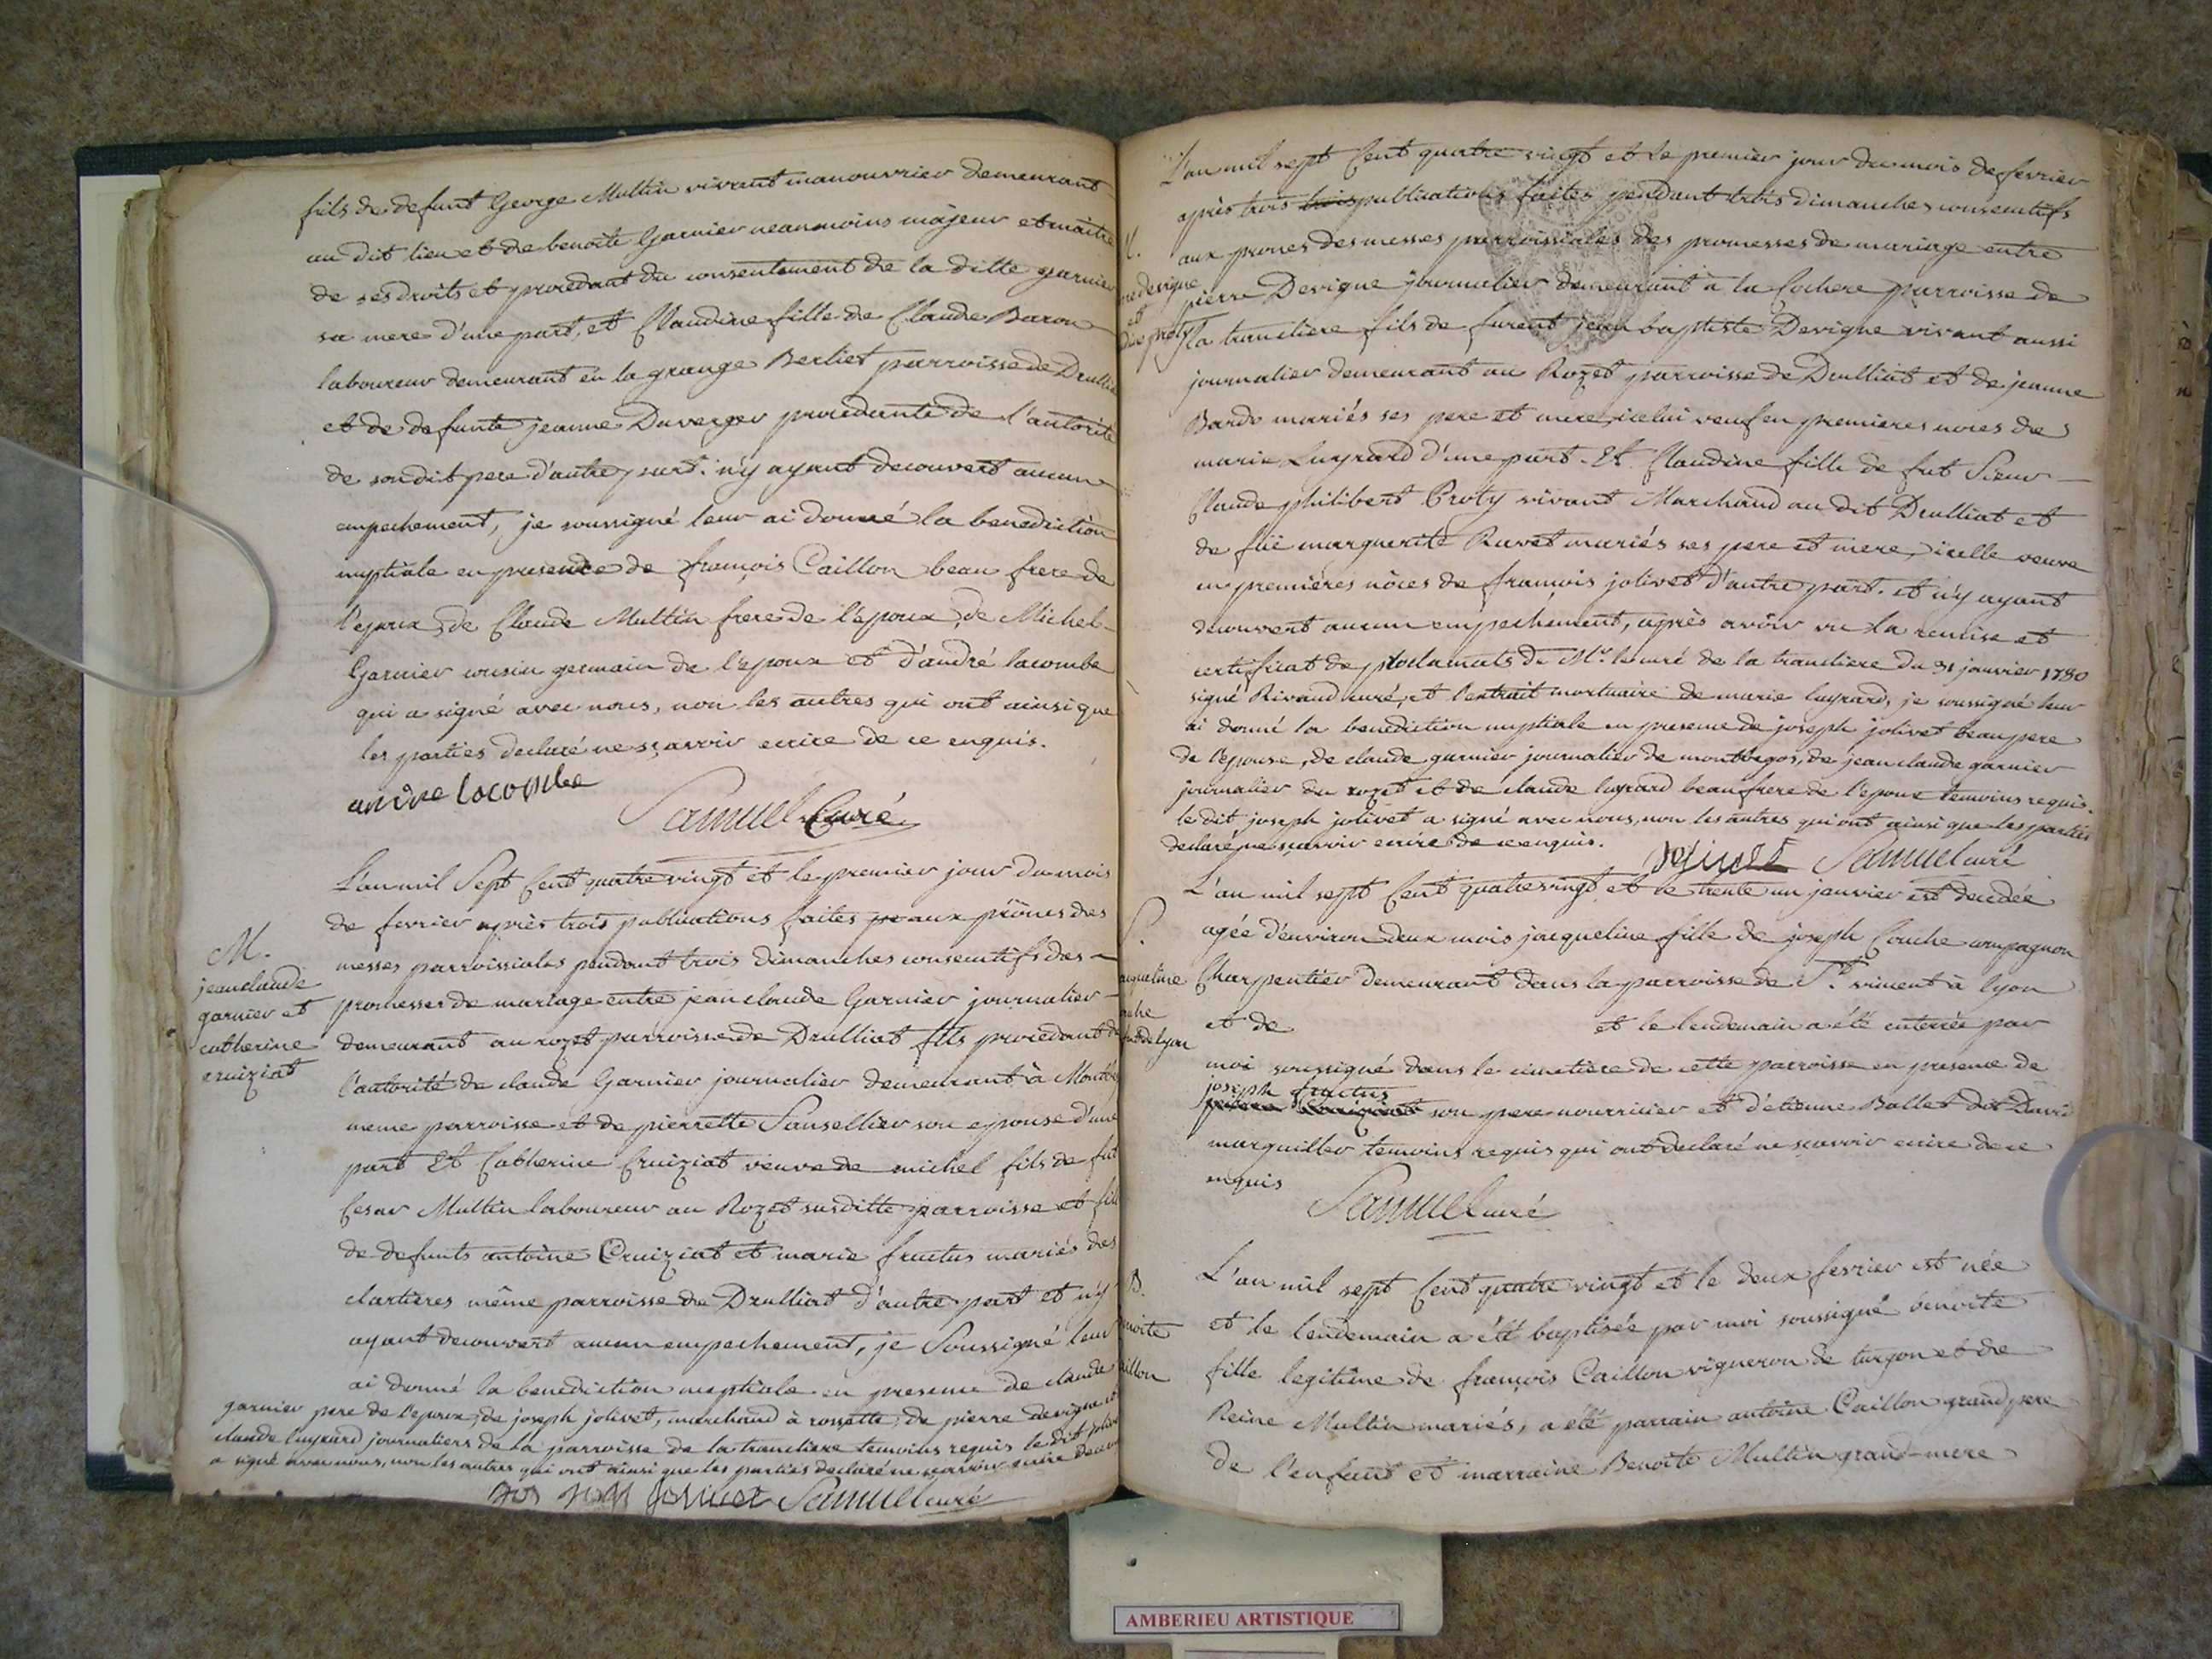 fils de defunt George Multin vivant manouvrier demeurant
au dit lieu et de benoite Garnier neanmoins majeur et maitre
de ses droits et procedant du consentement de la ditte garnier
sa mere d'une part, et Claudine fille de Claude Baron
laboureur demeurant en la grange Berliet parroisse de Drulliat
et de defunte jeanne Duverger procedante de l'autorité
de son dit pere d'autre part. n'y ayant decouvert aucun
empechement, je soussigné leur ai donné la benediction
nuptiale en presence de françois Caillon beau frere de
l'epoux, de Claude Multin frere de l'époux, de Michel
Garnier cousin germain de l'epoux et d'andré lacombe
qui a signé avec nous, non les autres qui ont ainsi que
les parties declaré ne sçavoir ecrire de ce enquis.
andre lacombe
Samuel Curé
L'an mil Sept Cent quatre vingt et le premier jour du mois
de fevrier après trois publications faites aux prônes des
M.
jean claude
garnier et
catherine
cruiziat
messes parroissiales pendant trois dimanches consecutifs des
promesses de mariage entre jean claude Garnier journalier
demeurant au rozet parroisse de Drulliat fils procedant de
l'autorité de claude Garnier journalier demeurant à
meme parroisse et de pierrette Sausellier son epouse d'une
part Et Catherine Cruiziat veuve de michel fils de fut
Cesar Multin laboureur au Rozet susditte parroisse et fille
de defunts antoine Cruiziat et marie fructus mariés des
clartieres même parroisse de Drulliat d'autre part et n'y
ayant decouvert aucun empechement, je Soussigné leur
ai donné la benediction nuptiale en presence de claude
garnier pere de l'epoux, de joseph jolivet, marchand à rossette, de pierre devigne et
claude luyrard journaliers de la parroisse de la trancliere temoins requis le dit jolivet
a signé avec nous, non les autres qui ont ainsi que les parties declaré ne scavoir ecrire de ce
jolivet Samuel curé
L'an mil sept Cent quatre vingt et le premier jour du mois de fevrier
après trois trois publications faites pendant trois dimanches consecutifs
aux prones des messes parroissiales des promesses de mariage entre
devigne
et
pierre Devigne journalier demeurant à la Cochere parroisse de
la trancliere fils de furent jean baptiste Devigne vivant aussi
journalier demeurant au Rozet parroisse de Drulliat et de jeanne
Bardo mariés ses pere et mere, icelui veuf en premieres noces de
marie Luyrard d'une part. Et Claudine fille de fut Sieur
Claude philibert Proty vivant Marchand au dit Drulliat et
de füe marguerite Ravet mariés ses pere et mere, icelle veuve
en premières nôces de françois jolivet d'autre part. et n'y ayant
decouvert aucun empechement, après avoir vu la remise et
certificat de proclamats de Mr. le curé de la trancliere du 31 janvier 1780
signé Rivaud curé, et l'extrait mortuaire de marie luyrard, je soussigné leur
ai donné la benediction nuptiale en presence de joseph jolivet beau pere
de l'epouse, de claude garnier journalier de montbegos, de jean claude garnier
journalier du rozet et de claude luyrard beau frere de l'epoux temoins requis.
le dit joseph jolivet a signé avec nous, non les autres qui ont ainsi que les parties
declaré ne sçavoir ecrire de ce enquis.
jolivet Samuel curé
L'an mil sept Cent quatre vingt et le trente un janvier est decedée
agée d'environ deux mois jacqueline fille de joseph Couche compagnon
S.
Charpentier demeurant dans la parroisse de St. vincent à lyon
et de et le lendemain a été enterrée par
de lyon
moi soussigné dans le cimetière de cette parroisse en presence de
joseph fructus
son pere nourricier et d'etienne Ballet dit David
marguiller temoins requis qui ont declaré ne scavoir ecrire de ce
enquis
Samuel curé
B.
L'an mil sept Cent quatre vingt et le deux fevrier est née
et le lendemain a été baptisée par moi soussigné benoite
fille legitime de françois Caillon vigneron de turgon et de
Reine Multin mariés, a été parrain antoine Caillon grand pere
de l'enfant et marraine Benoite Multin grand-mere
AMBERIEU ARTISTIQUE